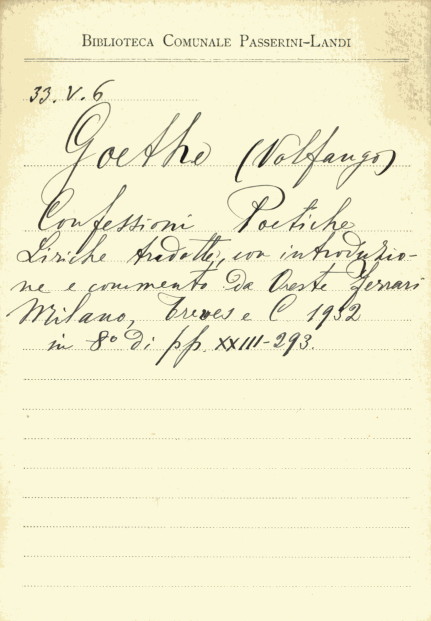 BIBLIOTECA COMUNALE PASSERINI-LANDI
33.V.6
Goethe (Volfango)
Confessioni Poetiche
Liriche tradotte, con introduzio-
ne e commento da Oreste Ferrari
Milano, Treves e C 1932
in 8° di pp. XXIII-293.